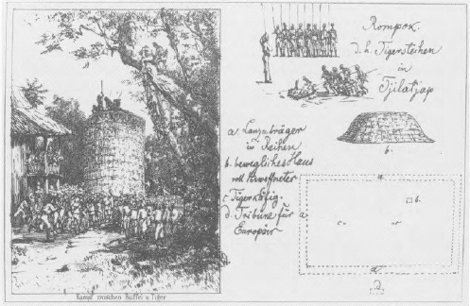 Kampf zwischen Büffel u. Tiger
Rompok.
d. h. Tigerstechen
in
Tjilatjap
b.
a Lanzenträger
in Reihen
b. bewegliches Haus
mit Bewaffneter
c Tigerkäfig.
d. Tribüne für
Europäer
a.
b.
a
c
a
d.